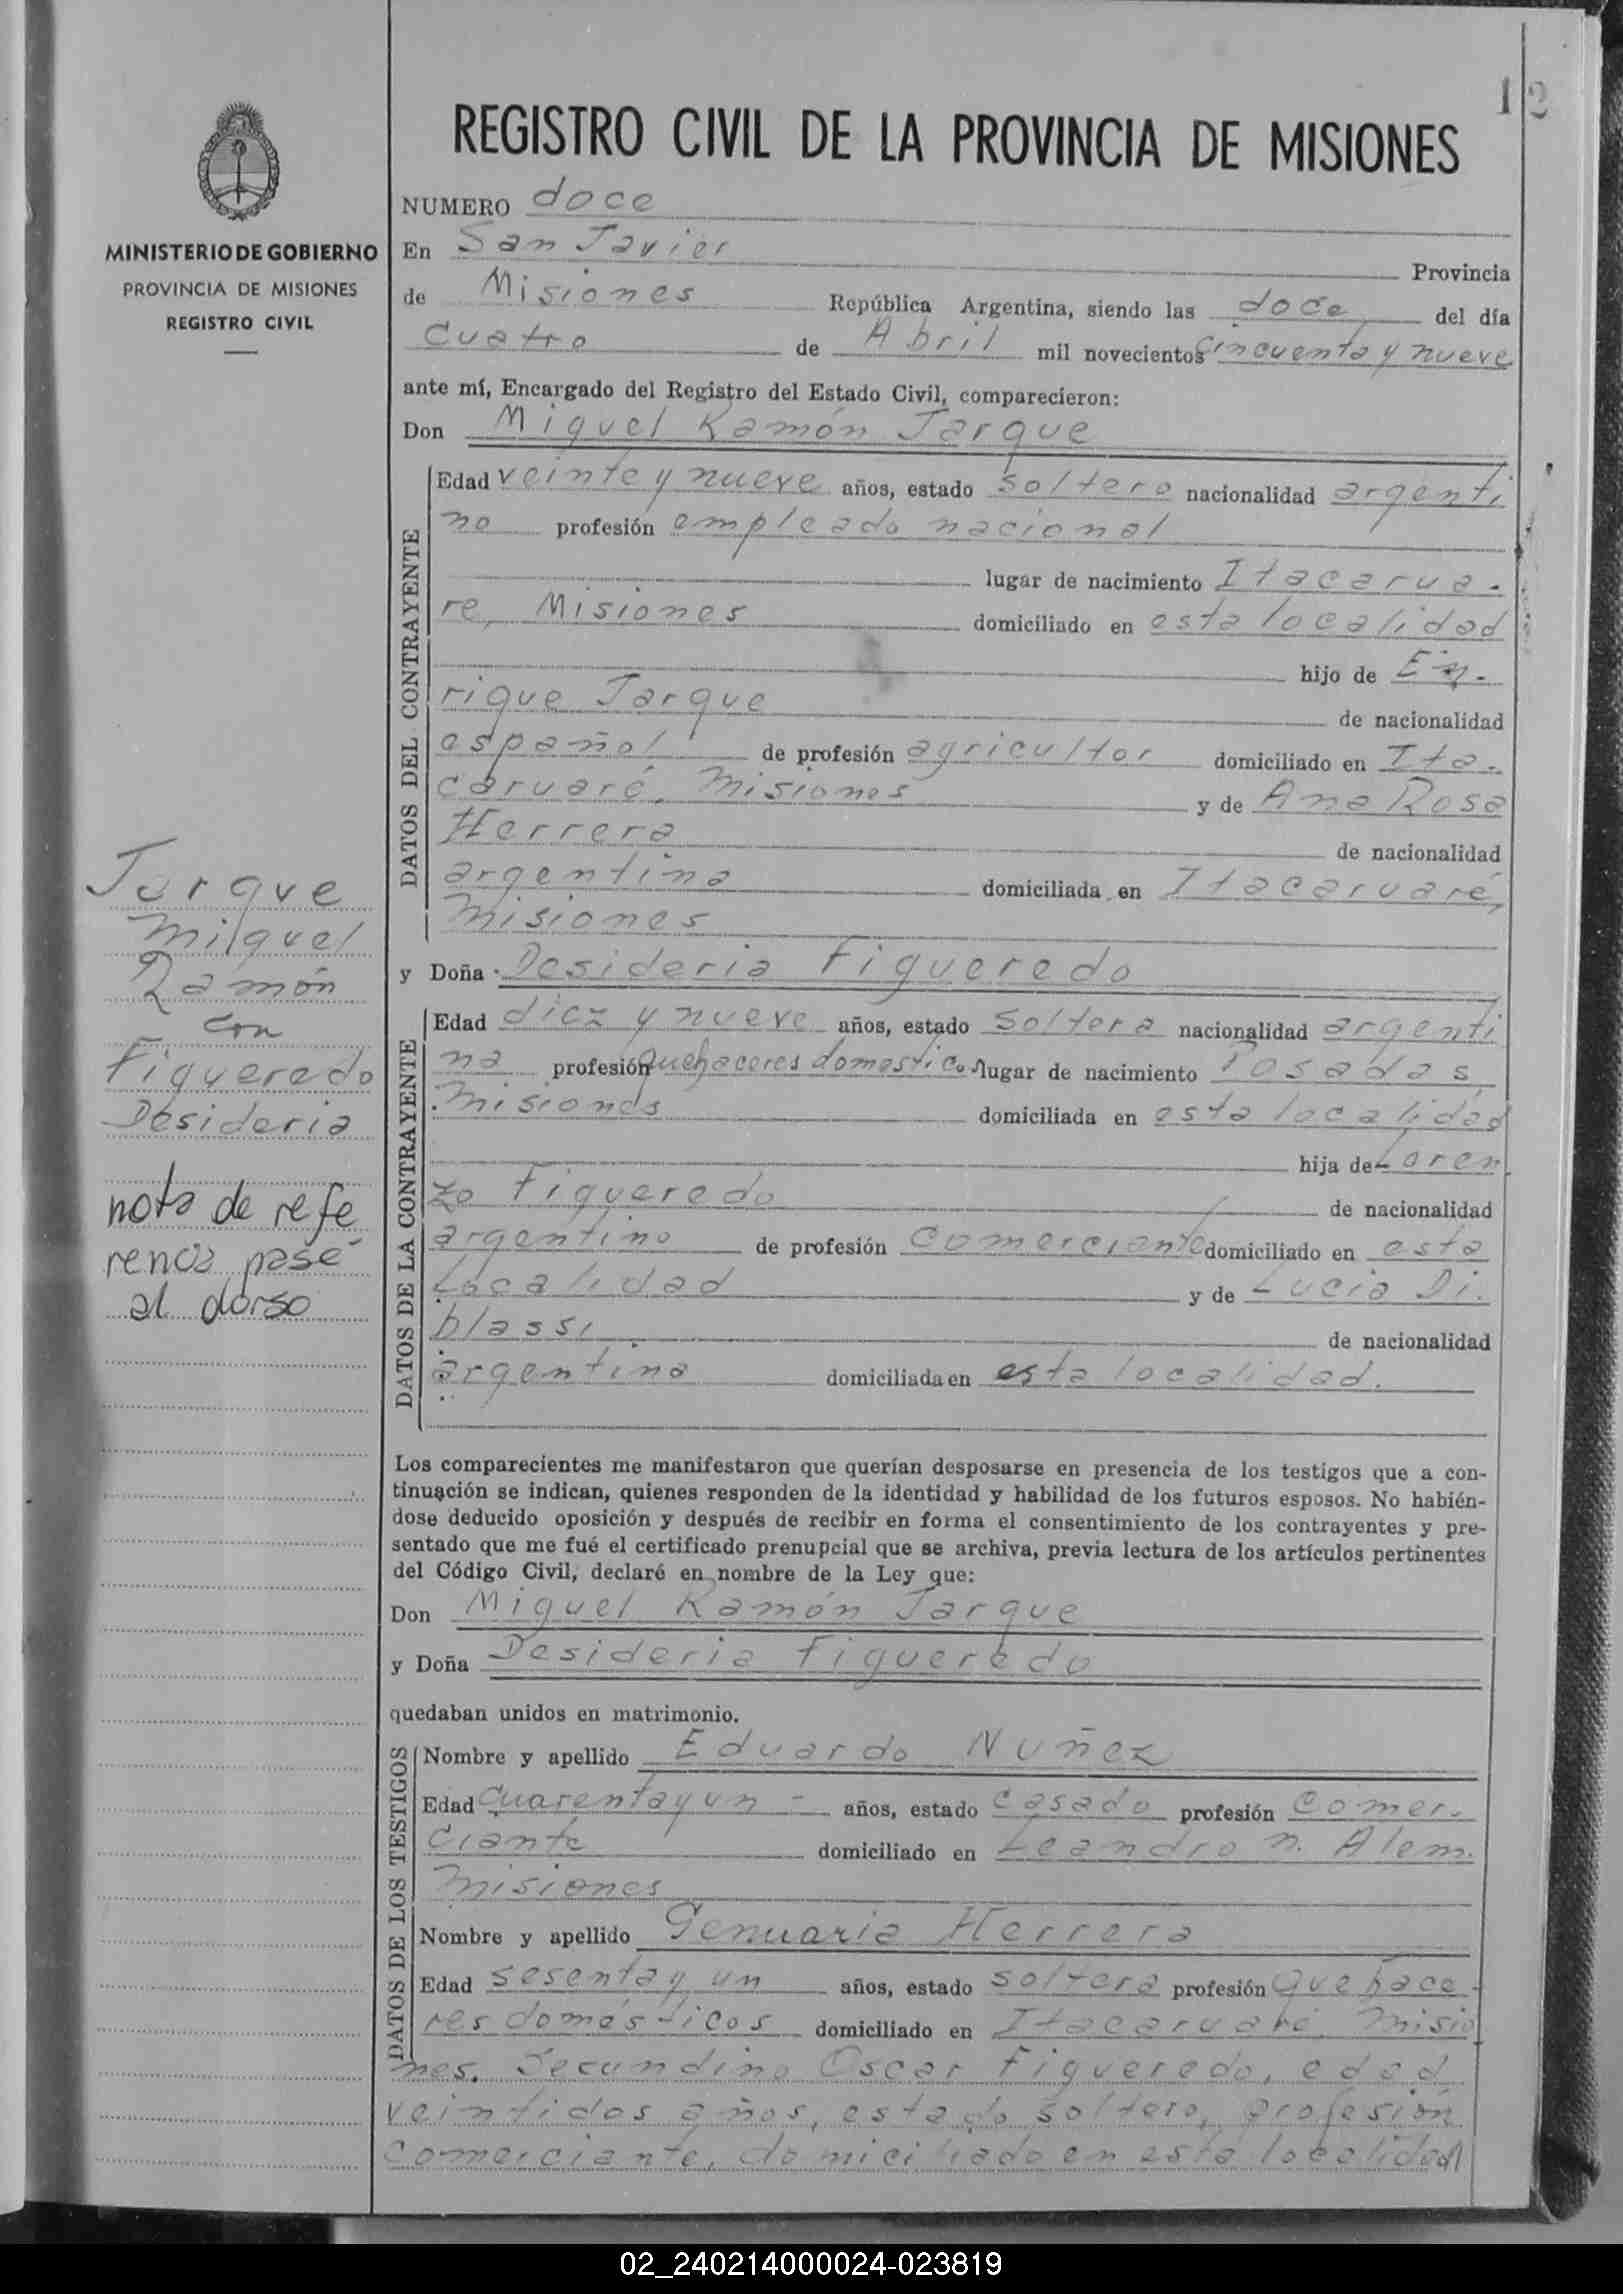 12
REGISTRO CIVIL DE LA PROVINCIA DE MISIONES
MINISTERIO DE GOBIERNO
PROVINCIA DE MISIONES
REGISTRO CIVIL
NUMERO doce
En San Javier Provincia
de Misiones República Argentina, siendo las doce del día
cuatro de Abril mil novecientos cincuenta y nueve
ante mí, Encargado del Registro del Estado Civil, comparecieron:
Don Miguel Ramón Jarque
DATOS DEL CONTRAYENTE
Edad veinte y nueve años, estado soltero nacionalidad argenti
no profesión empleado nacional
lugar de nacimiento Itacarua-
re, Misiones domiciliado en esta localidad
hijo de En-
rique Jarque de nacionalidad
español de profesión agricultor domiciliado en Ita-
caruaré, Misiones y de Ana Rosa
Herrera de nacionalidad
argentina domiciliada en Itacaruaré,
Misiones
y Doña Desideria Figueredo
DATOS DE LA CONTRAYENTE
Edad diez y nueve años, estado soltera nacionalidad argenti
na profesión quehaceres domesticos lugar de nacimiento Posadas,
Misiones domiciliada en esta localidad
hija de Loren
zo Figueredo de nacionalidad
argentino de profesión Comerciante domiciliado en esta
Localidad y de Lucia Di-
blassi de nacionalidad
argentina domiciliada en esta localidad.
Jarque
Miguel
Ramón
con
Figueredo
Desideria
nota de refe
rencia pasé
al dorso
Los comparecientes me manifestaron que querían desposarse en presencia de los testigos que a con-
tinuación se indican, quienes responden de la identidad y habilidad de los futuros esposos. No habién-
dose deducido oposición y después de recibir en forma el consentimiento de los contrayentes y pre-
sentado que me fué el certificado prenupcial que se archiva, previa lectura de los artículos pertinentes
del Código Civil, declaré en nombre de la Ley que:
Don Miguel Ramón Jarque
y Doña Desideria Figueredo
quedaban unidos en matrimonio.
DATOS DE LOS TESTIGOS
Nombre y apellido Eduardo Nuñez
Edad cuarenta y un - años, estado casado profesión Comer-
ciante domiciliado en Leandro N. Alem.
Misiones
Nombre y apellido Genuaria Herrera
Edad sesenta y un años, estado soltera profesión quehace-
res domésticos domiciliado en Itacaruaré, Misio
nes. Secundino Oscar Figueredo, edad
veintidos años, estado soltero, profesión
comerciante, domiciliado en esta localidad
02_240214000024-023819